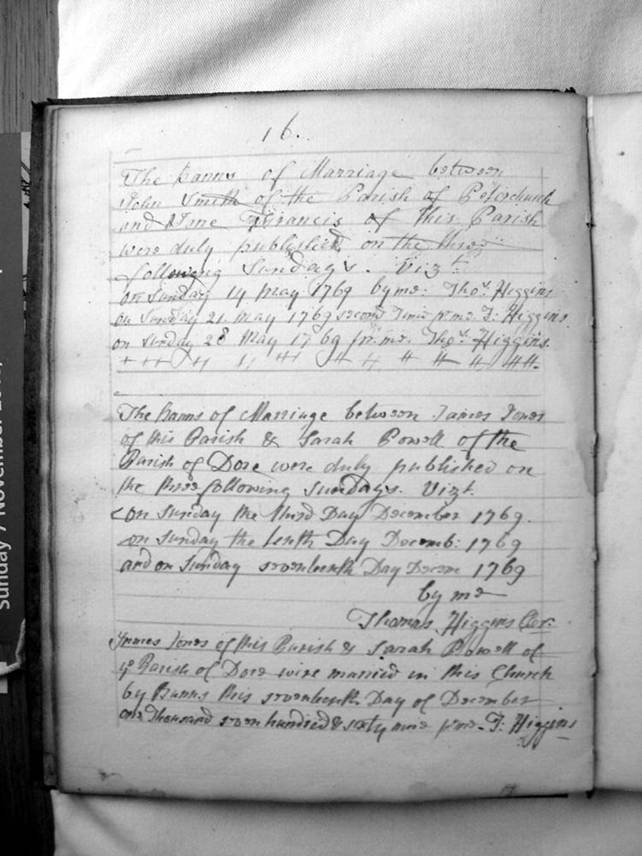 16.
The Banns of Marriage between
John Smith of the Parish of Peterchurch
and Jane Francis of this Parish
were duly published on the three
following Sundays. Vizt.
on Sunday 14 May 1769 by me: Thos. Higgins
on Sunday 21 May 1769 second Time pr. me. T: Higgins.
on Sunday 28 May 1769 pr. me. Thos. Higgins.
The Banns of Marriage between James Jones
of this Parish & Sarah Powell of the
Parish of Dore were duly published on
the three following Sundays. Vizt.
on Sunday the third Day December 1769.
on Sunday the tenth Day Decemb: 1769
and on Sunday seventeenth Day Decem 1769
by me
Thomas Higgins Cler:
James Jones of this Parish & Sarah Powell of
ye Parish of Dore were married in this Church
by Banns this seventeenth Day of December
one Thousand seven hundred & sixty nine pr me. T: Higgins
Sunday 7 November